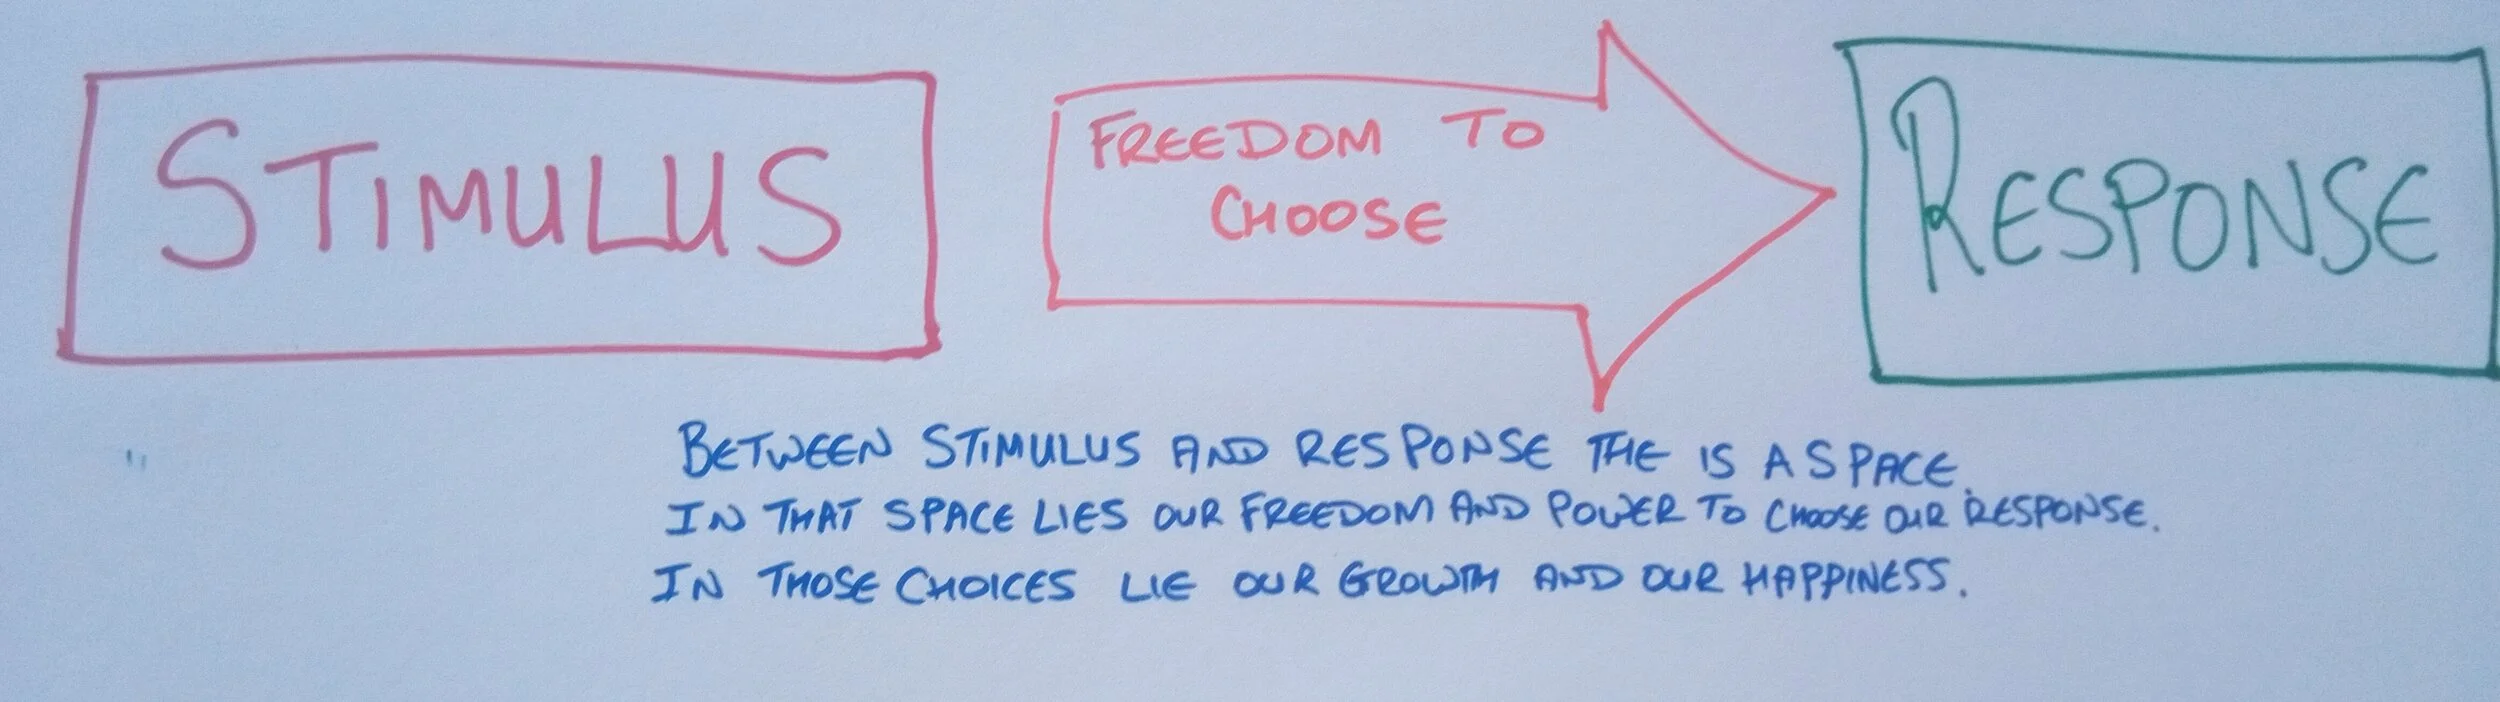 STIMULUS
FREEDOM TO
CHOOSE
RESPONSE
BETWEEN STIMULUS AND RESPONSE THE IS A SPACE.
IN THAT SPACE LIES OUR FREEDOM AND POWER TO CHOOSE OUR RESPONSE.
IN THOSE CHOICES LIE OUR GROWTH AND OUR HAPPINESS.